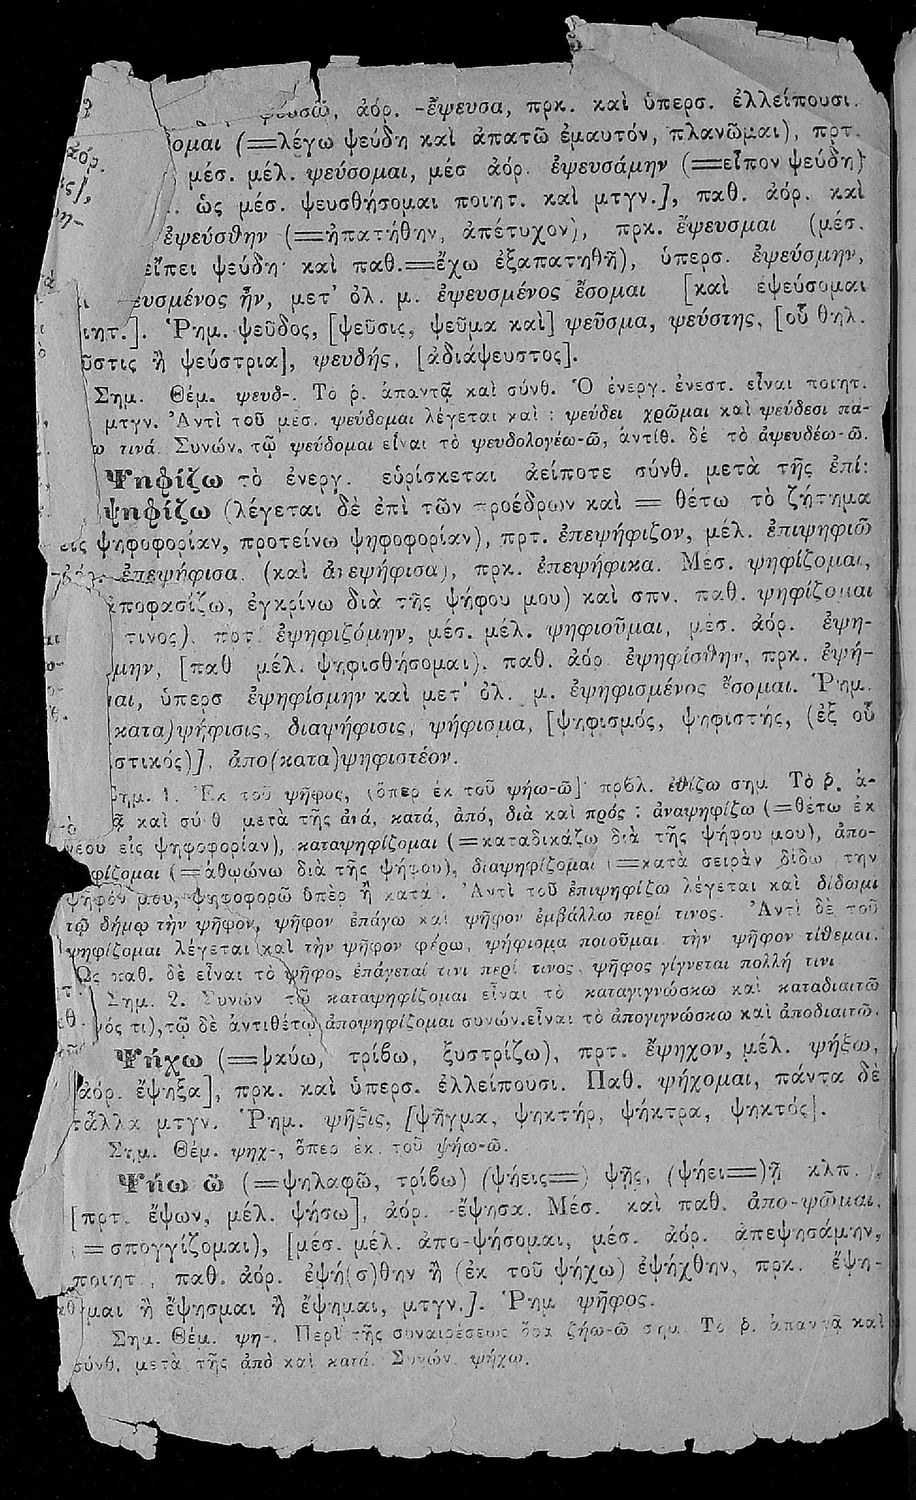 ἀόρ. -ἔψευσα, πρκ. καὶ ὑπερσ. ἐλλείπουσι.
ομαι (=λέγω ψεύδη καὶ ἀπατῶ ἐμαυτόν, πλανῶμαι), πρτ.
μέσ. μέλ. ψεύσομαι, μέσ ἀόρ. ἐψευσάμην (=εἶπον ψεύδη)
ὡς μέσ. ψευσθήσομαι ποιητ. καὶ μτγν.], παθ. ἀόρ. καὶ
ἐψεύσθην (=ἠπατήθην, ἀπέτυχον), πρκ. ἔψευσμαι (μέσ.
εἴπει ψεύδη· καὶ παθ.=ἔχω ἐξαπατηθῆ), ὑπερσ. ἐψεύσμην,
ευσμένος ἦν, μετ' ὀλ. μ. ἐψευσμένος ἔσομαι [καὶ ἐψεύσομαι
ιητ.]. Ῥημ. ψεῦδος, [ψεῦσις, ψεῦμα καὶ] ψεῦσμα, ψεύστης, [οὗ θηλ.
ῦστις ἢ ψεύστρια], ψευδής, [ἀδιάψευστος].
Σημ. Θέμ. ψευδ-. Τὸ ῥ. ἀπαντᾷ καὶ σύνθ. Ὁ ἐνεργ. ἐνεστ. εἶναι ποιητ.
μτγν. Ἀντὶ τοῦ μέσ. ψεύδομαι λέγεται καὶ : ψεύδει χρῶμαι καὶ ψεύδεσι πα-
ω τινά. Συνών. τῷ ψεύδομαι εἶναι τὸ ψευδολογέω-ῶ, ἀντίθ. δὲ τὸ ἀψευδέω-ῶ.
Ψηφίζω τὸ ἐνεργ. εὑρίσκεται ἀείποτε σύνθ. μετὰ τῆς ἐπί:
ψηφίζω (λέγεται δὲ ἐπὶ τῶν προέδρων καὶ = θέτω τὸ ζήτημα
εἰς ψηφοφορίαν, προτείνω ψηφοφορίαν), πρτ. ἐπεψήφιζον, μέλ. ἐπιψηφιῶ
ἐπεψήφισα. (καὶ ἀνεψήφισα), πρκ. ἐπεψήφικα. Μέσ. ψηφίζομαι,
ἀποφασίζω, ἐγκρίνω διὰ τῆς ψήφου μου) καὶ σπν. παθ. ψηφίζομαι
τινος). πρτ. ἐψηφιζόμην, μέσ. μέλ. ψηφιοῦμαι, μέσ. ἀόρ. ἐψη-
μην, [παθ μέλ. ψηφισθήσομαι). παθ. ἀόρ ἐψηφίσθην, πρκ. ἐψή-
αι, ὑπερσ ἐψηφίσμην καὶ μετ' ὀλ. μ. ἐψηφισμένος ἔσομαι. Ῥημ.
κατα)ψήφισις, διαψήφισις, ψήφισμα, [ψηφισμός, ψηφιστής, (ἐξ οὗ
στικός)], ἀπο(κατα)ψηφιστέον.
Σημ. 1. Ἐκ τοῦ ψῆφος, (ὅπερ ἐκ τοῦ ψήω-ῶ]· πρβλ. ἐθίζω σημ Τὸ ῥ. ἀ-
ᾷ καὶ σύνθ μετὰ τῆς ἀνά, κατά, ἀπό, διὰ καὶ πρός : ἀναψηφίζω (=θέτω ἐκ
νέου εἰς ψηφοφορίαν), καταψηφίζομαι (=καταδικάζω διὰ τῆς ψήφου μου), ἀπο-
φίζομαι (=ἀθωώνω διὰ τῆς ψήφου), διαψηφίζομαι (=κατὰ σειρὰν δίδω τὴν
ψῆφόν μου, ψηφοφορῶ ὑπὲρ ἢ κατά. Ἀντὶ τοῦ ἐπιψηφίζω λέγεται καὶ δίδωμι
τῷ δήμῳ τὴν ψῆφον, ψῆφον ἐπάγω καὶ ψῆφον ἐμβάλλω περί τινος. Ἀντὶ δὲ τοῦ
ψηφίζομαι λέγεται καὶ τὴν ψῆφον φέρω, ψήφισμα ποιοῦμαι τὴν ψῆφον τίθεμαι.
Ὡς παθ. δὲ εἶναι τὸ ψῆφος ἐπάγεταί τινι περί τινος, ψῆφος γίγνεται πολλή τινι
Σημ. 2. Συνών τῷ καταψηφίζομαι εἶναι τὸ καταγιγνώσκω καὶ καταδιαιτῶ
νός τι), τῷ δὲ ἀντιθέτῳ ἀποψηφίζομαι συνών. εἶναι τὸ ἀπογιγνώσκω καὶ ἀποδιαιτῶ.
Ψήχω (=ψκύω, τρίβω, ξυστρίζω), πρτ. ἔψηχον, μέλ. ψήξω,
[ἀόρ. ἔψηξα], πρκ. καὶ ὑπερσ. ἐλλείπουσι. Παθ. ψήχομαι, πάντα δὲ
τἆλλα μτγν. Ῥημ. ψῆξις, [ψῆγμα, ψηκτήρ, ψήκτρα, ψηκτός].
Σημ. Θέμ. ψηχ-, ὅπερ ἐκ τοῦ ψήω-ῶ.
Ψήω ῶ (=ψηλαφῶ, τρίβω) (ψήεις=) ψῇς, (ψήει=)ῇ κλπ.
[πρτ. ἔψων, μέλ. ψήσω], ἀόρ. -ἔψησα. Μέσ. καὶ παθ. ἀπο-ψῶμαι.
(=σπογγίζομαι), [μέσ. μέλ. ἀπο-ψήσομαι, μέσ. ἀόρ. ἀπεψησάμην,
ποιητ., παθ. ἀόρ. ἐψή(σ)θην ἢ (ἐκ τοῦ ψήχω) ἐψήχθην, πρκ. ἔψη-
μαι ἢ ἔψησμαι ἢ ἔψημαι, μτγν.]. Ῥημ ψῆφος.
Σημ. Θέμ. ψη-. Περὶ τῆς συναιρέσεως ὅρα ζήω-ῶ σημ. Τὸ ῥ. ἀπαντᾷ καὶ
σύνθ. μετὰ τῆς ἀπὸ καὶ κατά. Συνών. ψήχω.